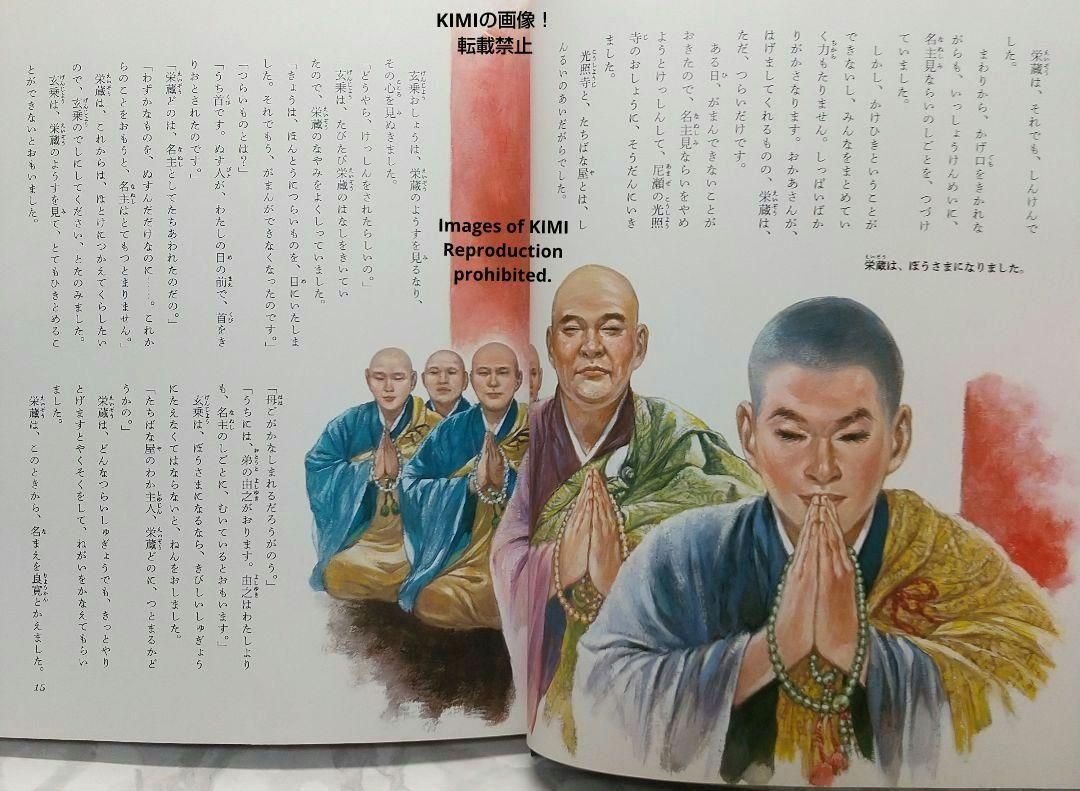 KIMIの画像！
転載禁止
Images of KIMI
Reproduction
prohibited.
栄蔵は、それでも、しんけんで
した。
まわりから、かげ口をきかれな
がらも、いっしょうけんめいに、
名主見ならいのしごとを、つづけ
ていました。
しかし、かけひきということが
できないし、みんなをまとめてい
く力もたりません。しっぱいばか
りがかさなります。おかあさんが、
はげましてくれるものの、栄蔵は、
ただ、つらいだけです。
ある日、がまんできないことが
おきたので、名主見ならいをやめ
ようとけっしんして、尼瀬の光照
寺のおしょうに、そうだんにいき
ました。
光照寺と、たちばな屋とは、し
んるいのあいだがらでした。
栄蔵は、ぼうさまになりました。
玄乗おしょうは、栄蔵のようすを見るなり、
その心を見ぬきました。
「どうやら、けっしんをされたらしいの。」
玄乗は、たびたび栄蔵のはなしをきいてい
たので、栄蔵のなやみをよくしっていました。
「きょうは、ほんとうにつらいものを、目にいたしま
した。それでもう、がまんができなくなったのです。」
「つらいものとは？」
「うち首です。ぬす人が、わたしの目の前で、首をき
りおとされたのです。」
「栄蔵どのは、名主としてたちあわれたのだの。」
「わずかなものを、ぬすんだだけなのに……。これか
らのことをおもうと、名主はとてもつとまりません。」
栄蔵は、これからは、ほとけにつかえてくらしたい
ので、玄乗のでしにしてください、とたのみました。
玄乗は、栄蔵のようすを見て、とてもひきとめるこ
とができないとおもいました。
「母ごがかなしまれるだろうがのう。」
「うちには、弟の由之がおります。由之はわたしより
も、名主のしごとに、むいているとおもいます。」
玄乗は、ぼうさまになるなら、きびしいしゅぎょう
にたえなくてはならないと、ねんをおしました。
「たちばな屋のわか主人、栄蔵どのに、つとまるかど
うかの。」
栄蔵は、どんなつらいしゅぎょうでも、きっとやり
とげますとやくそくをして、ねがいをかなえてもらい
ました。
栄蔵は、このときから、名まえを良寛とかえました。
15